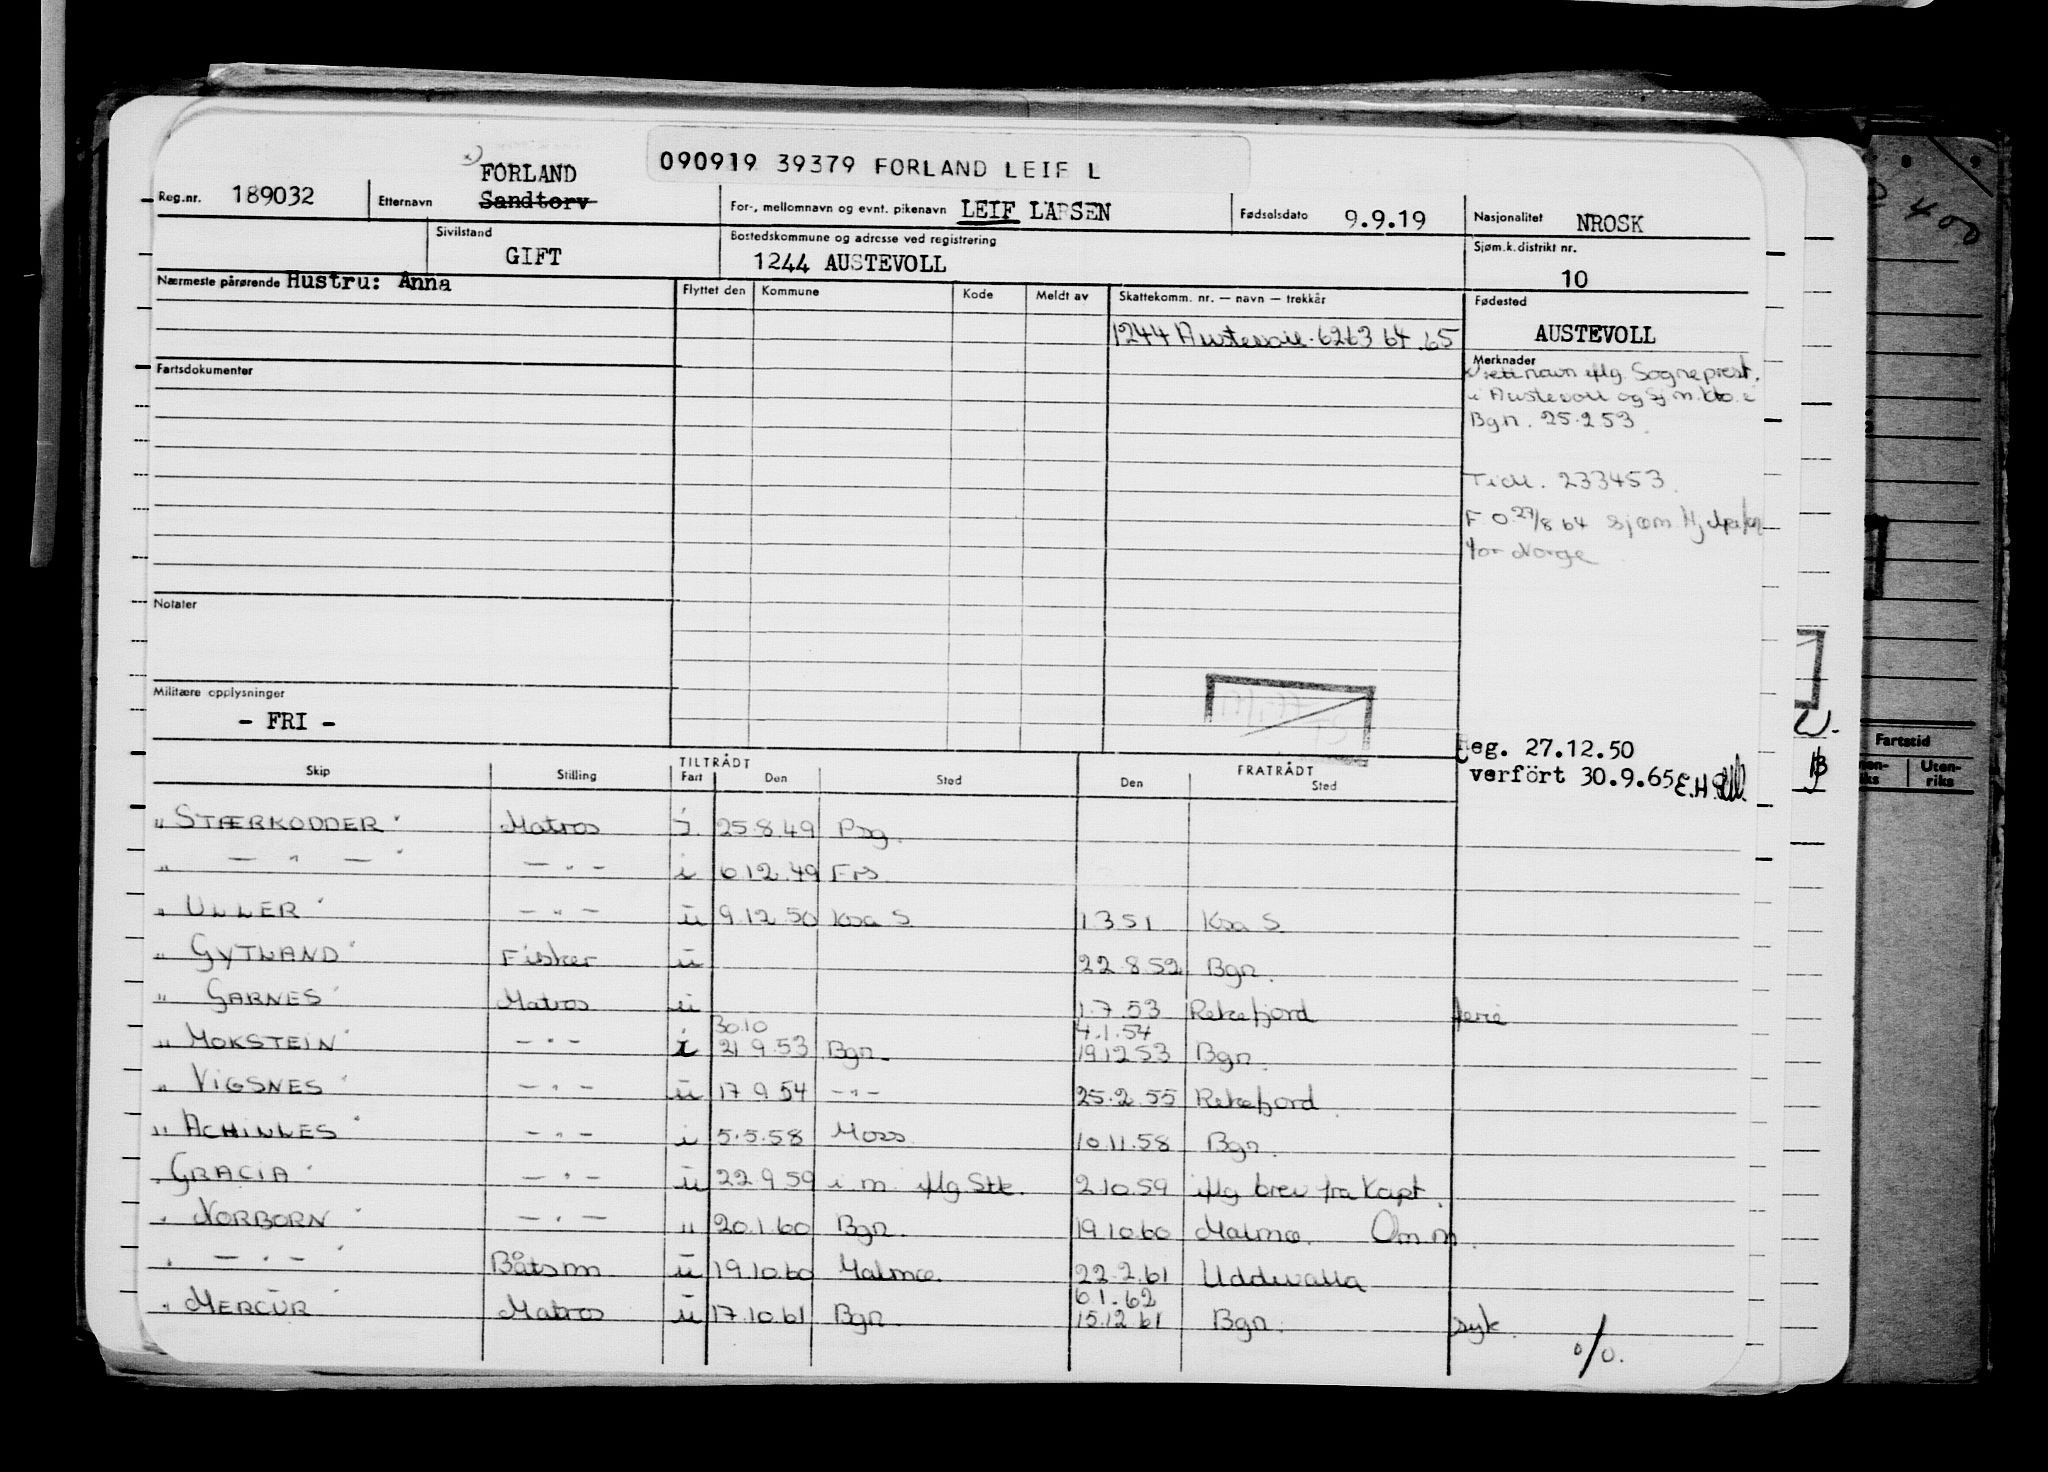 090919 39379 FORLAND LEIF L
x) FORLAND
Reg.nr. 189032 Etternavn Sandtorv For-, mellomnavn og evnt. pikenavn LEIF LARSEN Fødselsdato 9.9.19 Nasjonalitet NROSK
Sivilstand GIFT Bostedskommune og adresse ved registrering 1244 AUSTEVOLL Sjøm.k.distrikt nr. 10
Nærmeste pårørende Hustru: Anna Flyttet den Kommune Kode Meldt av Skattekomm. nr. — navn — trekkår Fødested
1244 Austevoll. 62 63 64 65 AUSTEVOLL
Merknader
Fartsdokumenter
x) rett navn iflg. Sogneprest.
i Austevoll og sjm.kto. i
Bgn. 25.2.53.
Tidl. 233453.
F.O. 27/8 64 sjøm.
for Norge
Notater
Militære opplysninger
- FRI -
Reg. 27.12.50
verført 30.9.65
Skip Stilling TILTRÅDT Fart Den Sted FRATRÅDT Den Sted
" STÆRKODDER " Matros i. 25.8.49 Psg.
" — " — " — " — i 6.12.49 Frs
" ULLER " — " — ü 9.12.50 Ksa S 1.3.51 Ksa S
" GYTLAND " Fisker ü 22.8.52 Bgn.
" GARNES " Matros ü 1.7.53 Rekefjord ferie
30.10 4.1.54
" MOKSTEIN " — " — i 21.9.53 Bgn. 19.12.53 Bgn.
" VIGSNES " — " — ü 17.9.54 — " — 25.2.55 Rekefjord
" ACHILLES " — " — i 5.5.58 Moss 10.11.58 Bgn.
" GRACIA " — " — ü 22.9.59 i.m. iflg Stk. 2.10.59 iflg brev fra Kapt.
" NORBORN " — " — " 20.1.60 Bgn. 19.10.60 Malmø. Om m.
" — " — " Båtsm ü 19.10.60 Malmø. 22.2.61 Uddevalla
6.1.62
" MERCUR " Matros ü 17.10.61 Bgn. 15.12.61 Bgn. syk.
Fartstid
Uten-
riks